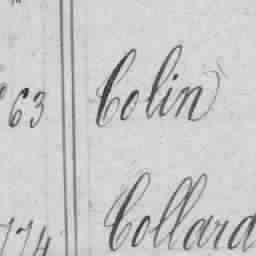 63 Colin
774 Collard